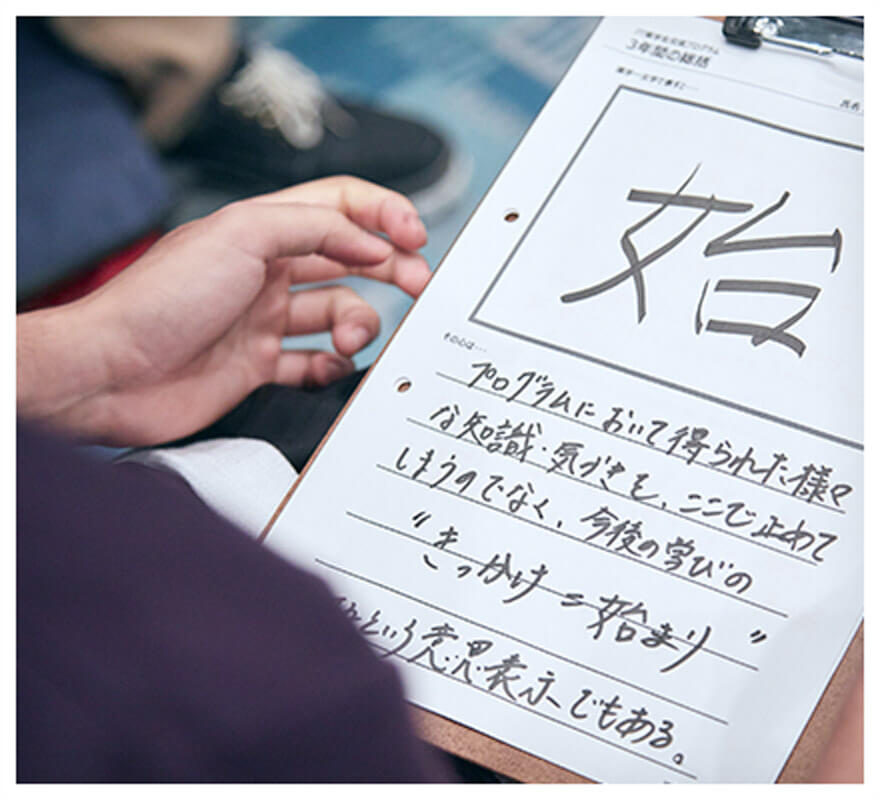 3年間の総括
漢字一文字で表すと…
氏名
始
その心は…
プログラムにおいて得られた様々
な知識・気づきを、ここで止めて
しまうのでなく、今後の学びの
“きっかけ=始まり”
という意思表示でもある。